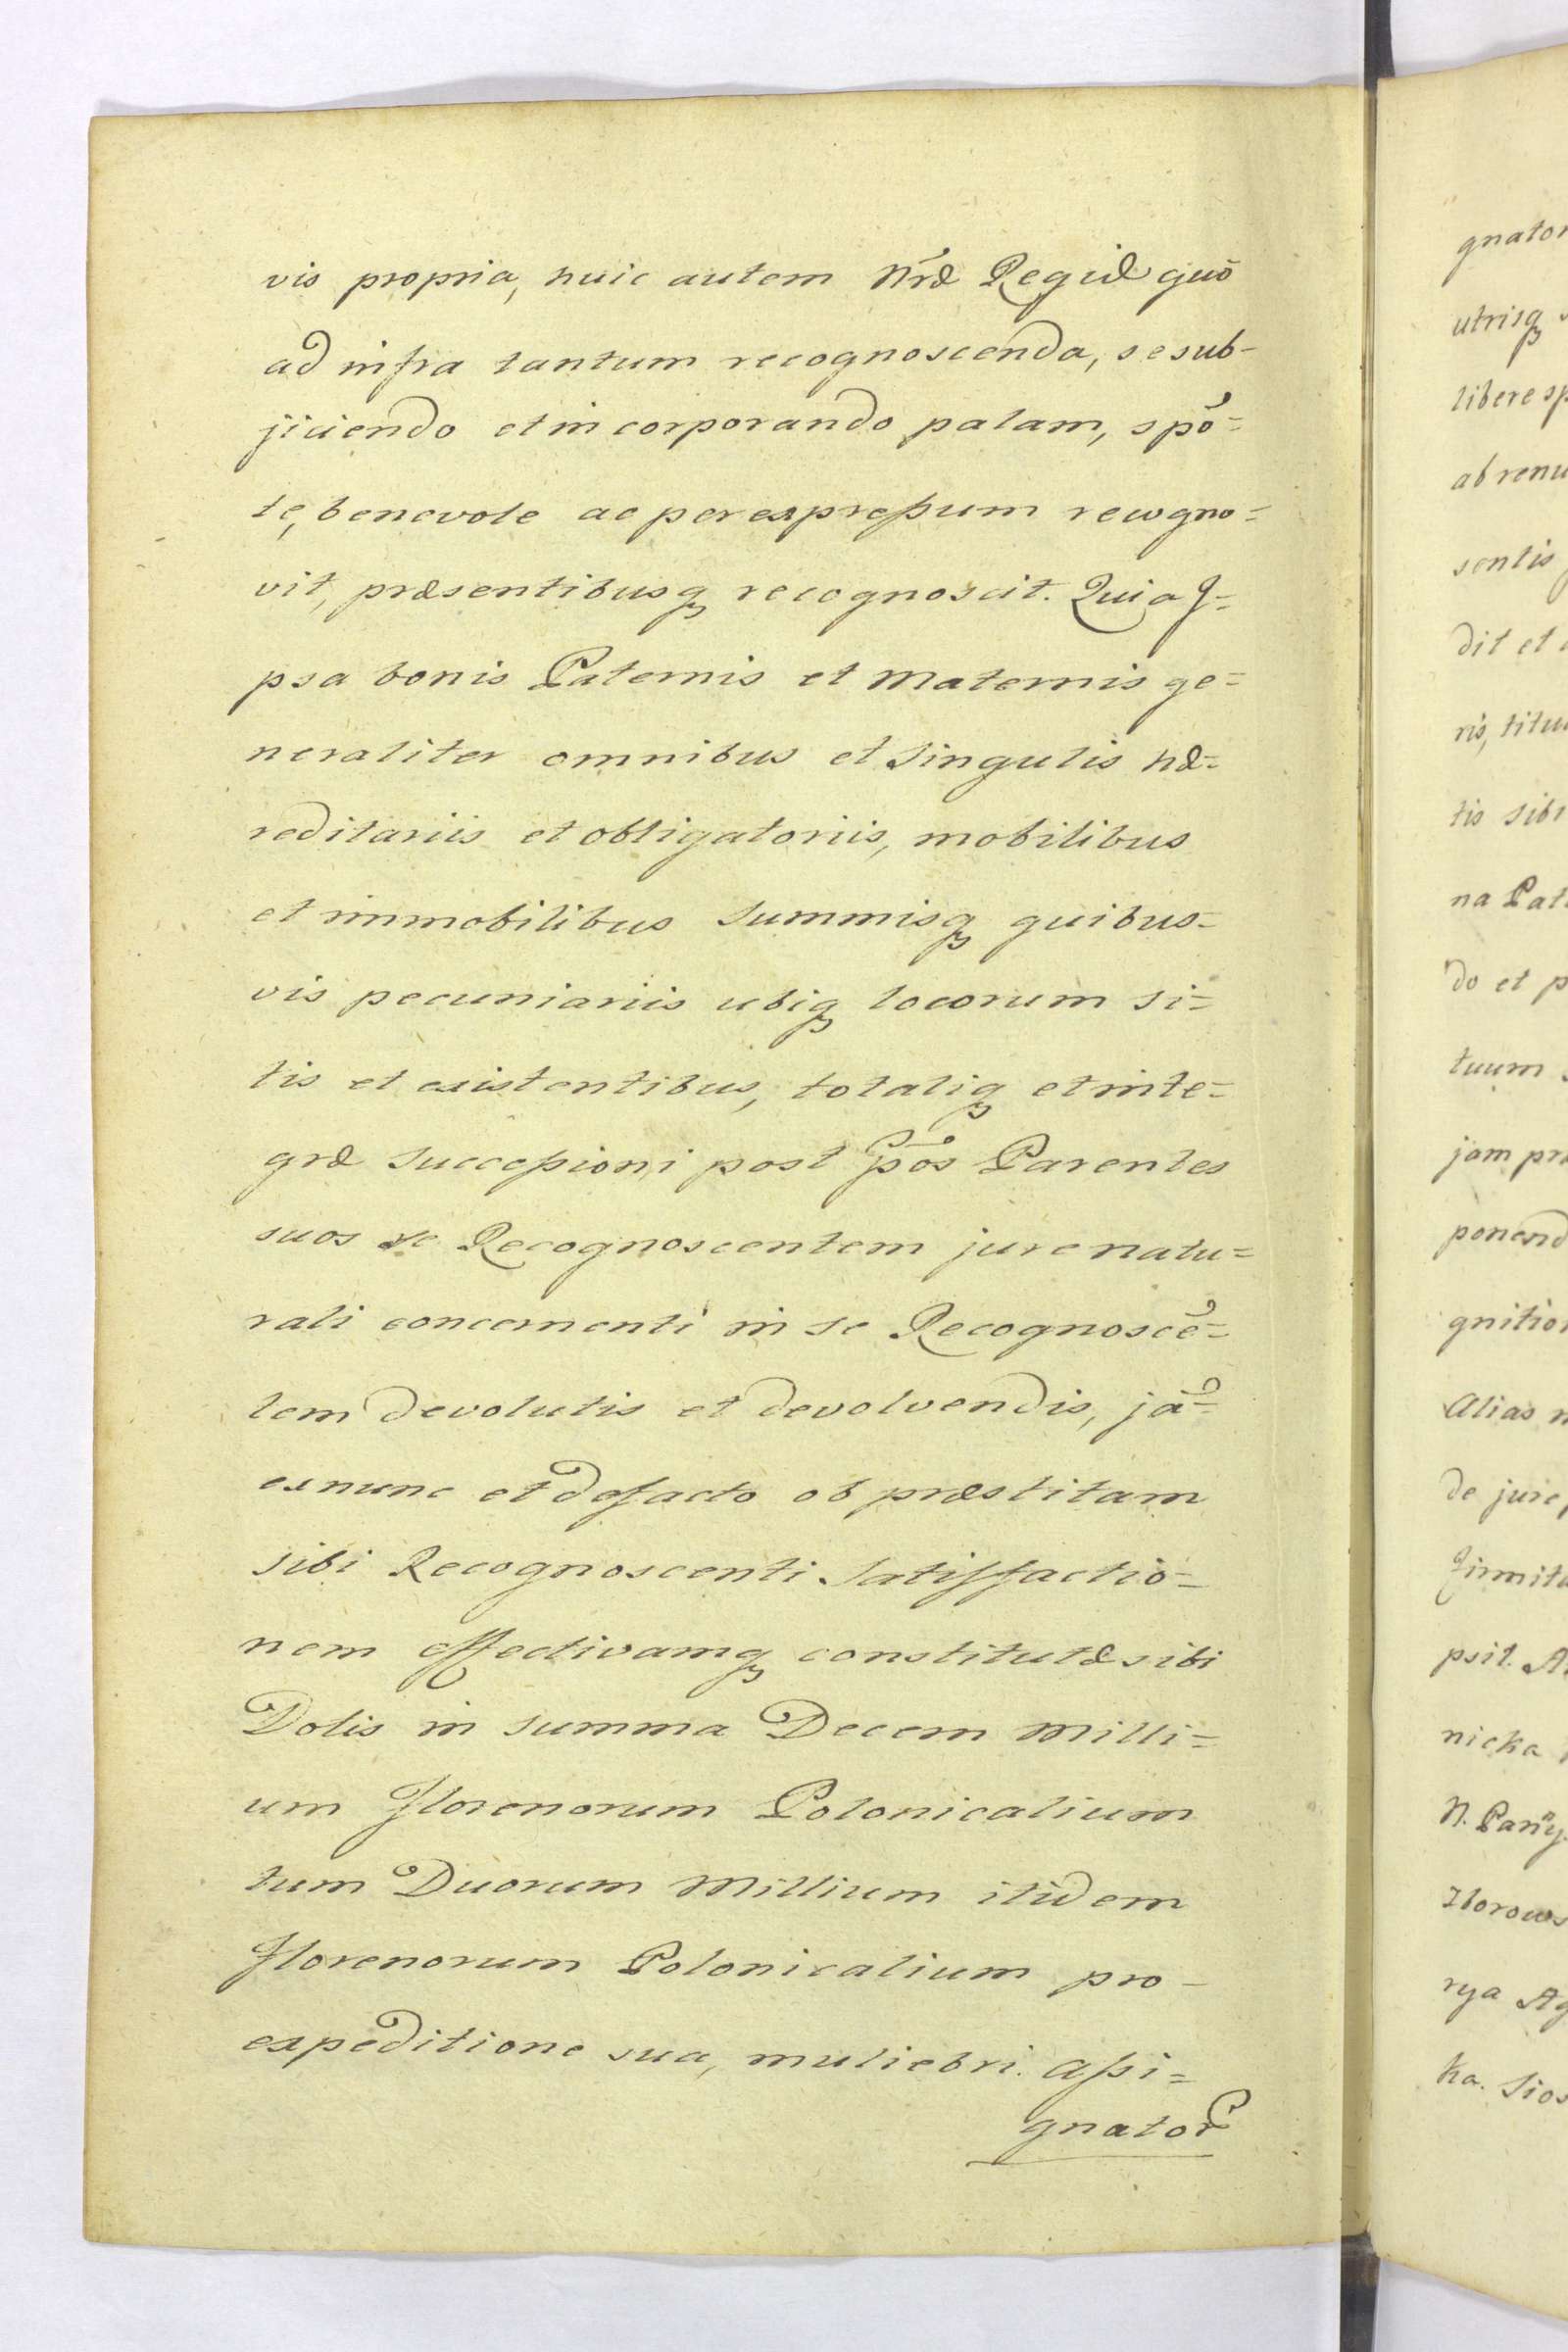 vis propria, huic autem Nræ Regiæ quò
ad infra tantum recognoscenda, se sub-
jiciendo et incorporando palam, spõ=
te, benevole ac per expreßum recogno=
vit, præsentibusq recognoscit. Quia J=
psa bonis Paternis et Maternis ge=
neraliter omnibus et singulis hæ=
reditariis et obligatoriis, mobilibus
et immobilibus summisq quibus=
vis pecuniariis ubiq locorum si=
tis et existentibus, totaliq et inte=
græ succeßioni post ppos Parentes
suos se Recognoscentem jure natu=
rali concernenti in se Recognoscẽ=
tem devolutis et devolvendis, jã=
ex nunc et de facto ob præstitam
sibi Recognoscenti satisfactio=
nem effectivamq constitutæ sibi
Dotis in summa Decem Milli=
um Florenorum Polonicalium
tum Duorum Millium itidem
Florenorum Polonicalium pro
expeditione sua, muliebri. Aßi=
gnator
gnator
utrisq
libere sp
ab renu
sentis
dit et
ris, titu
tis sibi
na Pat
do et p
tuum
jam præ
ponend
gnition
Alias n
de jure
Firmita
psit. A
nicka
N. Panny
Zborows
rya Ag
ka. Sios